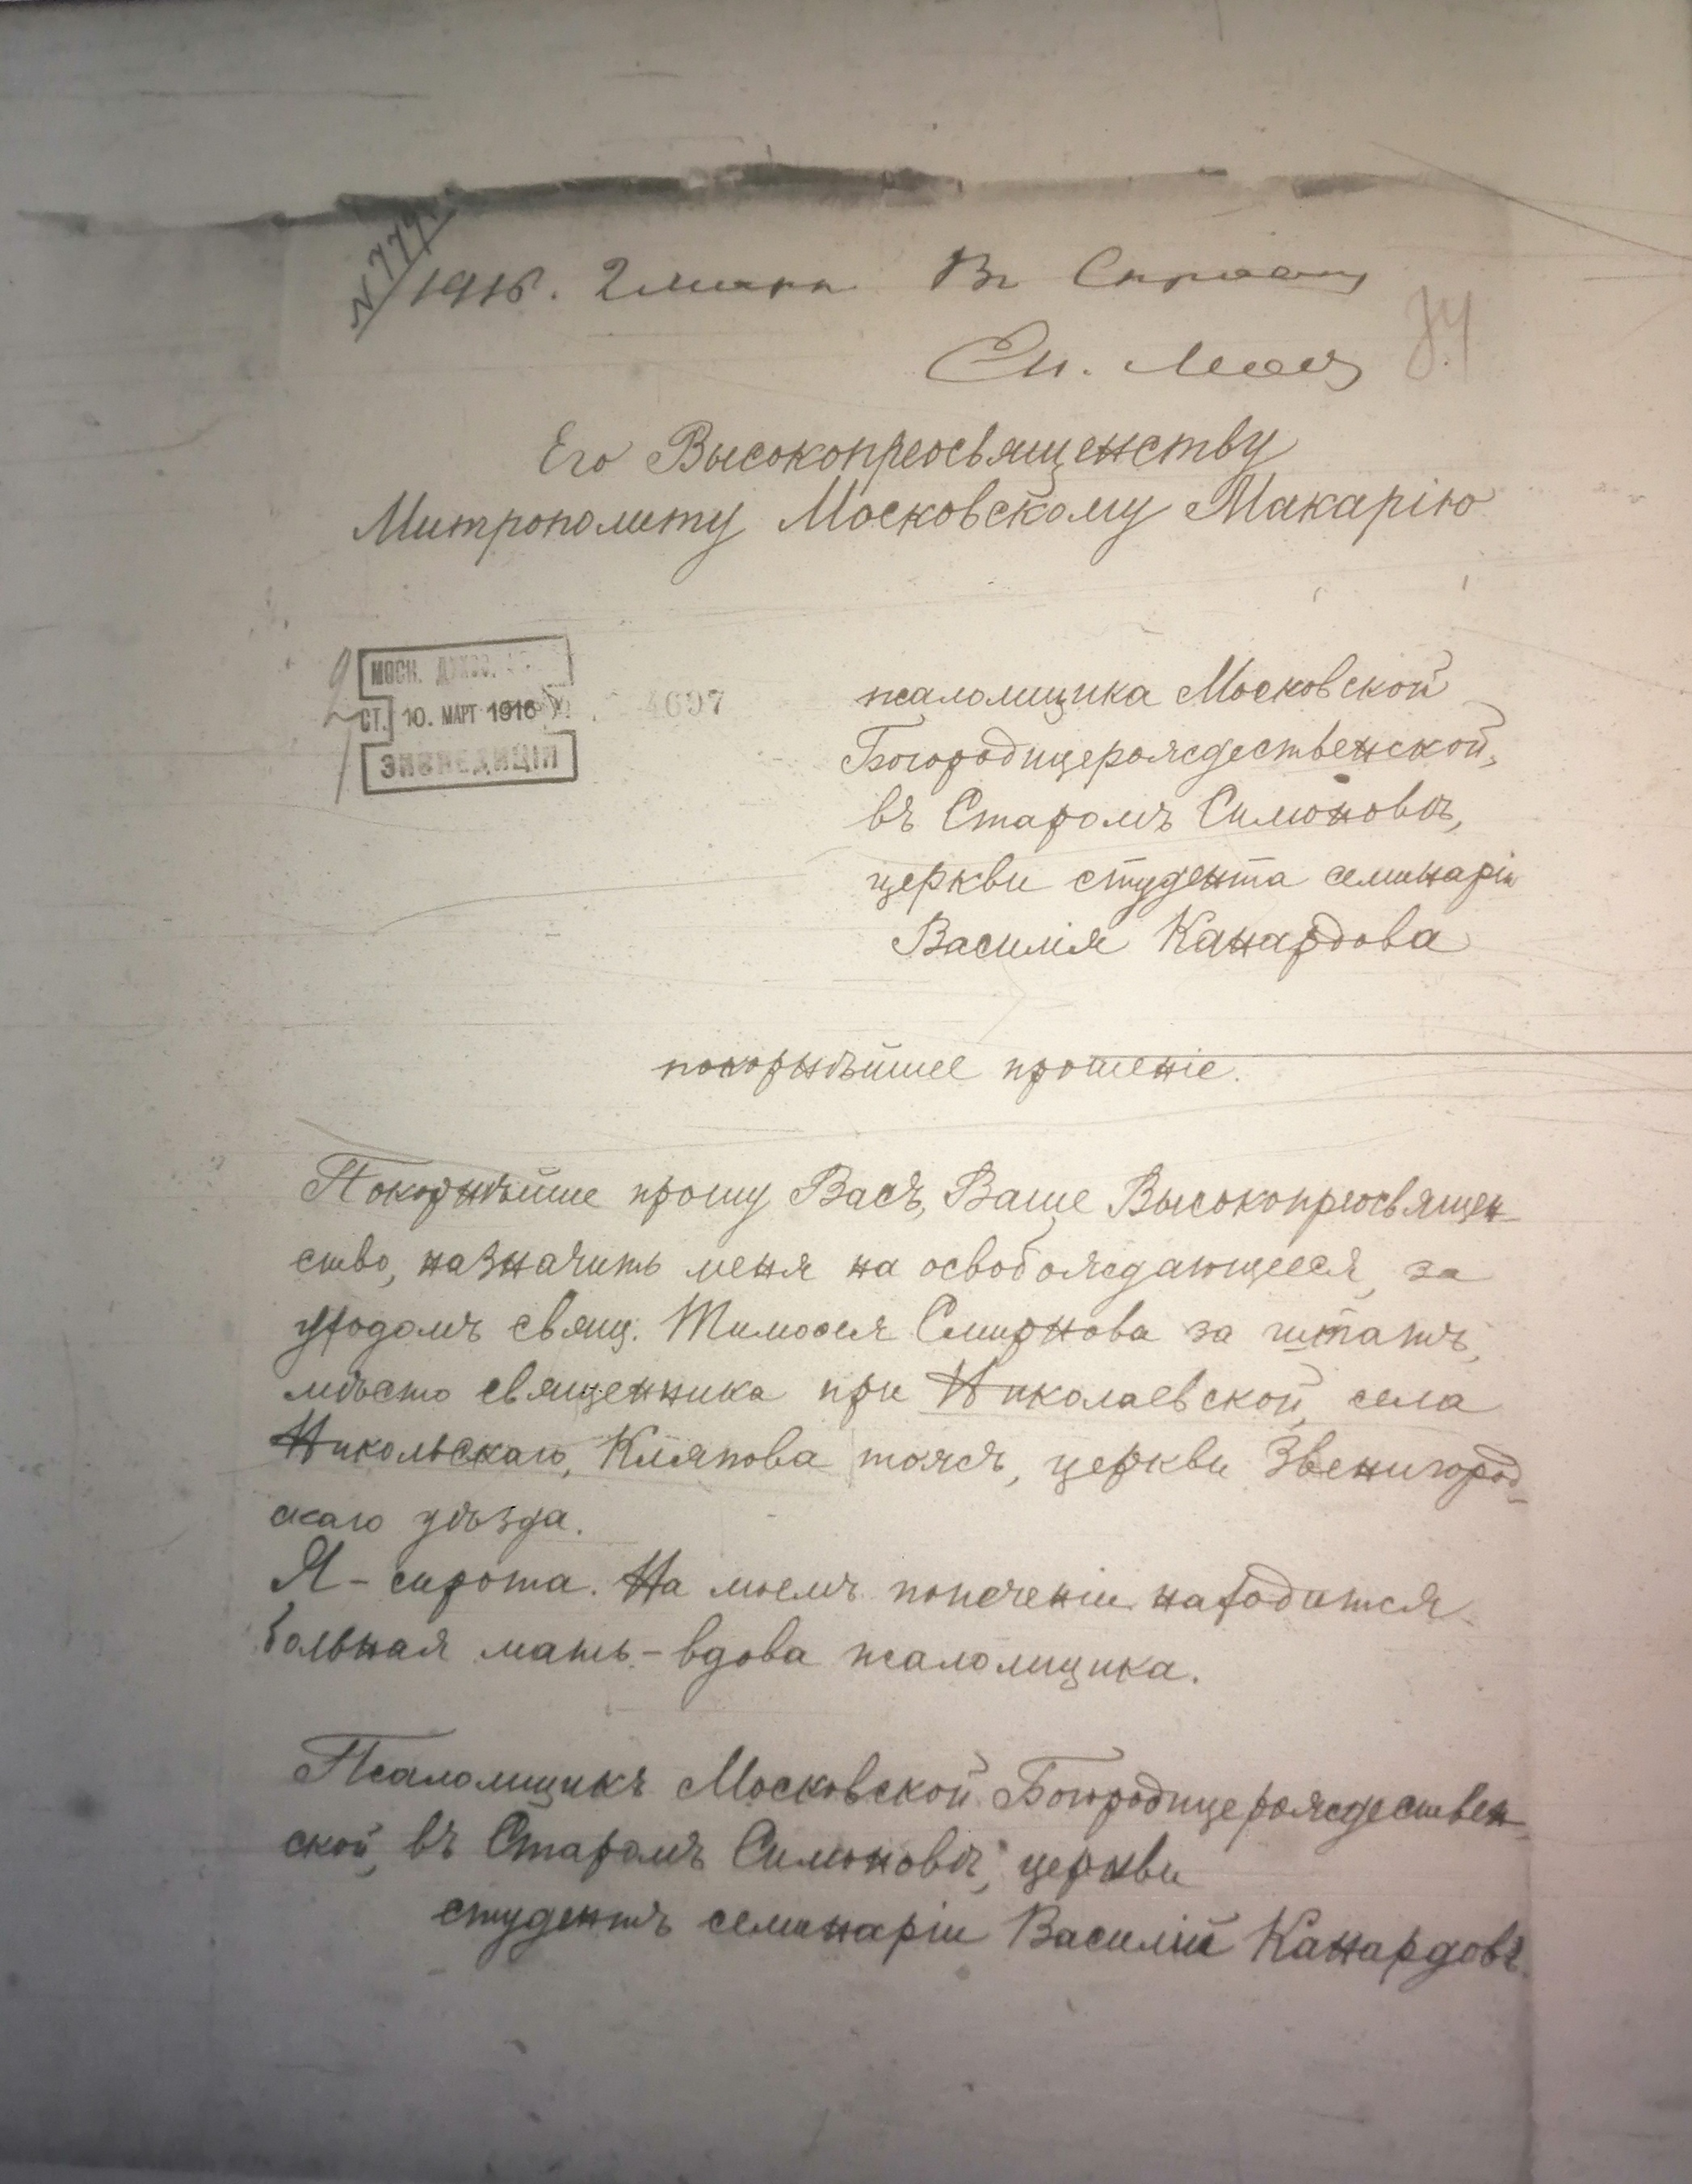 1916. 2 марта В Справку
Еп. Мод
74
Его Высокопреосвященству
Митрополиту Московскому Макарію
МОСК. ДУХОВ.
СТ. 10. МАРТ 1916
ЭКСПЕДИЦІЯ
4697
псаломщика Московской
Богородицерождественской,
въ Старомъ Симоновѣ,
церкви студента семинаріи
Василія Канардова
покорнѣйшее прошеніе.
Покорнѣйше прошу Васъ, Ваше Высокопреосвящен-
ство, назначить меня на освобождающееся, за
уходомъ свящ. Тимоѳея Смирнова за штатъ,
мѣсто священника при Николаевской, села
Никольскаго, Кляпова тожъ, церкви Звенигород-
скаго уѣзда.
Я - сирота. На моемъ попеченіи находится
больная мать - вдова псаломщика.
Псаломщикъ Московской Богородицерождествен-
ской, въ Старомъ Симоновѣ, церкви
студентъ семинаріи Василій Канардовъ.